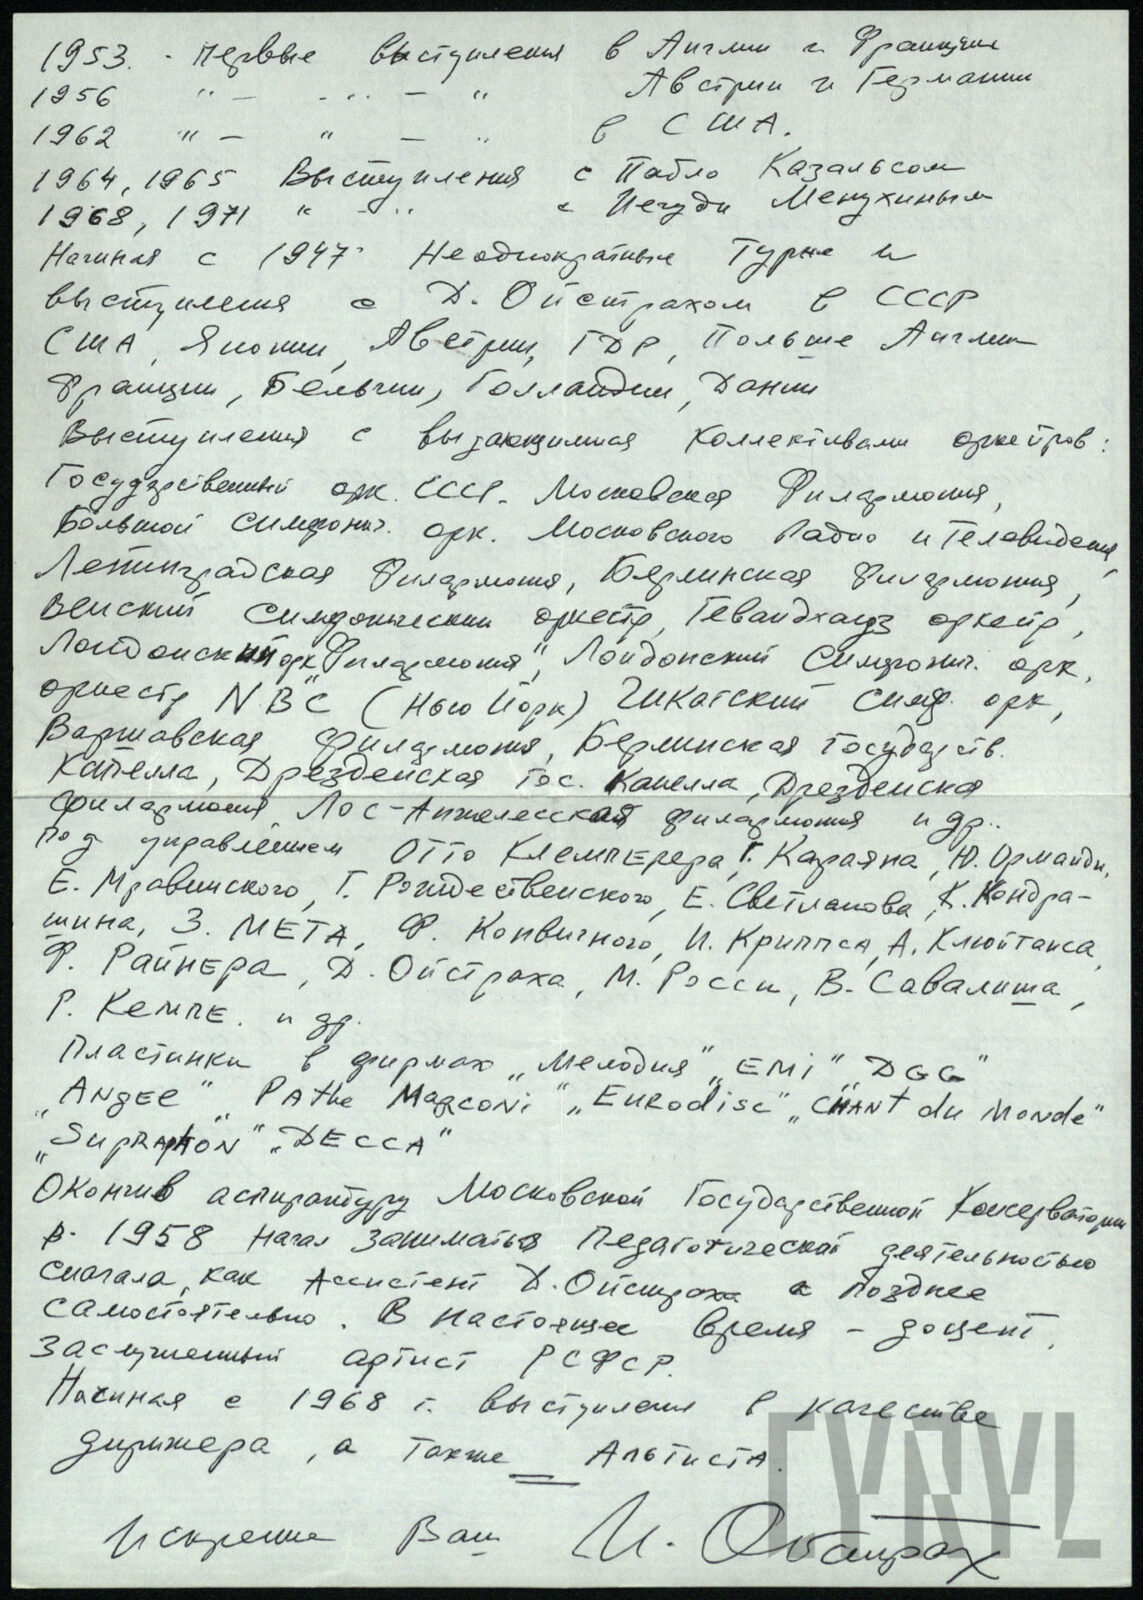 1953. - первые выступления в Англии и Франции
1956 " - " - " Австрии и Германии
1962 " - " - " в США.
1964, 1965 Выступления с Пабло Казальсом
1968, 1971 " - " с Иегуди Менухиным
Начиная с 1947 Неоднократные Турне и
выступления с Д. Ойстрахом в СССР
США, Японии, Австрии, ГДР, Польше Англии
Франции, Бельгии, Голландии, Дании
Выступления с выдающимися коллективами оркестров:
Государственный орк. СССР. Московская Филармония,
Большой симфонич. орк. Московского Радио и Телевидения,
Ленинградская Филармония, Берлинская Филармония,
Венский симфонический оркестр, Гевандхауз оркестр,
Лондонский орк "Филармония", Лондонский Симфонич. орк,
оркестр NBC (Нью Йорк) Чикагский симф. орк,
Варшавская филармония, Берлинская государств.
Капелла, Дрезденская гос. Капелла, Дрезденская
филармония, Лос-Анжелесская филармония и др..
Под управлением Отто Клемперера, Г. Караяна, Ю. Орманди,
Е. Мравинского, Г. Рождественского, Е. Светланова, К. Кондра-
шина, З. МЕТА, Ф. Конвичного, И. Криппса, А. Клюитанса,
Ф. Райнера, Д. Ойстраха, М. Росси, В. Савалиша,
Р. Кемпе. и др.
Пластинки в фирмах „Мелодия" „EMI" „DGG"
„Angel" „Pathe Marconi" „Eurodisc" „Chant du Monde"
„Supraphon" „DECCA"
Окончив аспирантуру Московской Государственной Консерватории
в. 1958 начал заниматься Педагогической деятельностью
сначала, как Ассистент Д. Ойстраха а позднее
самостоятельно. В настоящее время - доцент.
Заслуженный артист РСФСР.
Начиная с 1968 г. выступления в качестве
дирижера, а также Альтиста.
Искренне Ваш И. Ойстрах